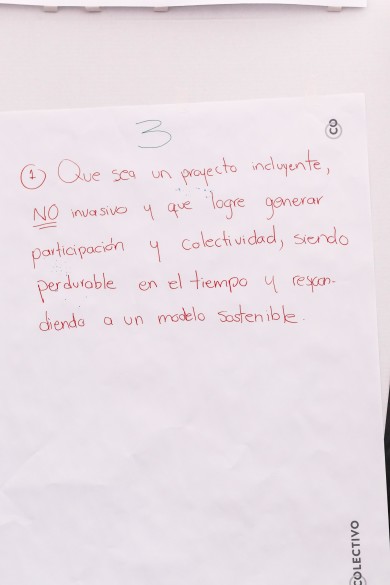 3
CO
① Que sea un proyecto incluyente,
NO invasivo y que logre generar
participación y colectividad, siendo
perdurable en el tiempo y respon-
diendo a un modelo sostenible.
COLECTIVO